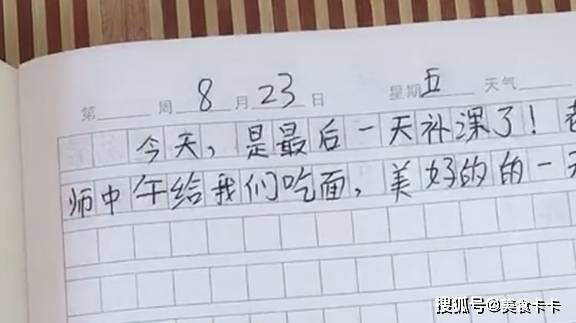 第 周 8月23日 星期五 天气
今天，是最后一天补课了！老
师中午给我们吃面，美好的的一天
搜狐号@美食卡卡